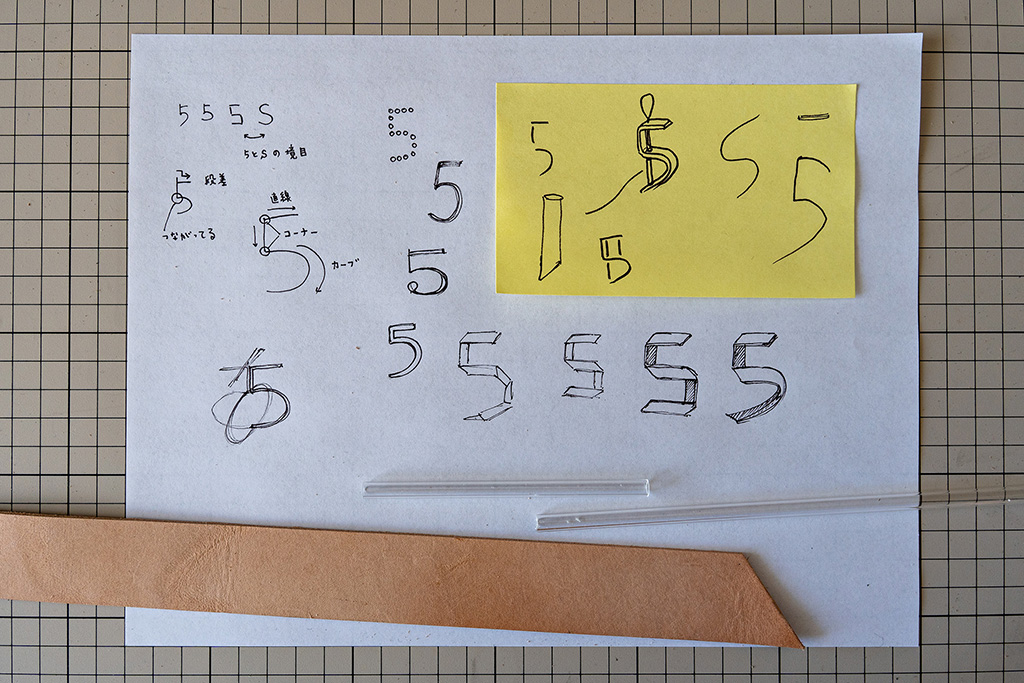 5 5 5 S
5とSの境目
段差
つながってる
直線
コーナー
カーブ
5
5
5
5
5
5
5
S
5
5
5
5
5
5
5